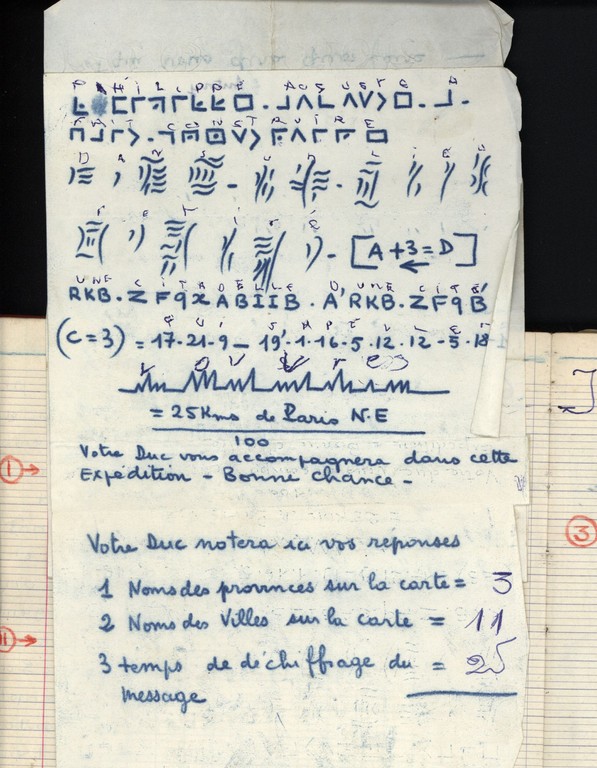 PHILIPPE AUGUSTE A
FAIT CONSTRUIRE
D A N S U N L I E U
[A +3=D]
UNE CITADELLE D'UNE CITÉ
RKB. ZFqXABIIB. A'RKB. ZFqB'
Q U I S A P E L L E R
(C=3) = 17-21-9 - 19'-1-16-5-12-12-5-18
L O U V r e s
= 25Kms de Paris N.E
100
Votre Duc vous accompagnera dans cette
Expédition - Bonne chance -
Votre Duc notera ici vos réponses
1 Noms des provinces sur la carte = 3
2 Noms des Villes sur la carte = 11
3 temps de déchiffrage du = 25
message
1
3
11